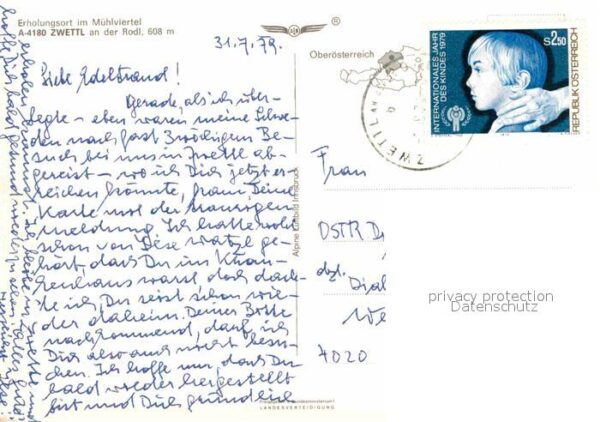 Erholungsort im Mühlviertel
A-4180 ZWETTL an der Rodl, 608 m
31.7.79.
Oberösterreich
INTERNATIONALES JAHR
DES KINDES 1979
S 2.50
REPUBLIK ÖSTERREICH
ZWETTL
Liebe Edeltraud!
Gerade, als ich über-
legte – eben waren meine
nach fast 3wöchigen Be-
such bei uns in Zwettl ab-
gereist – wo ich Dich jetzt er-
reichen könnte, kam Deine
Karte mit der traurigen
Meldung. Ich hatte wohl
schon von ge-
hört, dass Du im Kran-
kenhaus warst, doch dach-
te ich Du seist schon wie-
der daheim. Deiner Bitte
nachkommend, darf ich
Dich also auch nicht besu-
chen. Ich hoffe nur, dass Du
bald wieder hergestellt
bist und Dich gründlich
erholen kannst. Ich bleibe in Zwettl und
hoffe Dich bald gesund wieder zu sehen.
Alpine Luftbild Innsbruck
LANDESVERTEIDIGUNG
Frau
OSTR D
dzt.
We
4020
privacy protection
Datenschutz